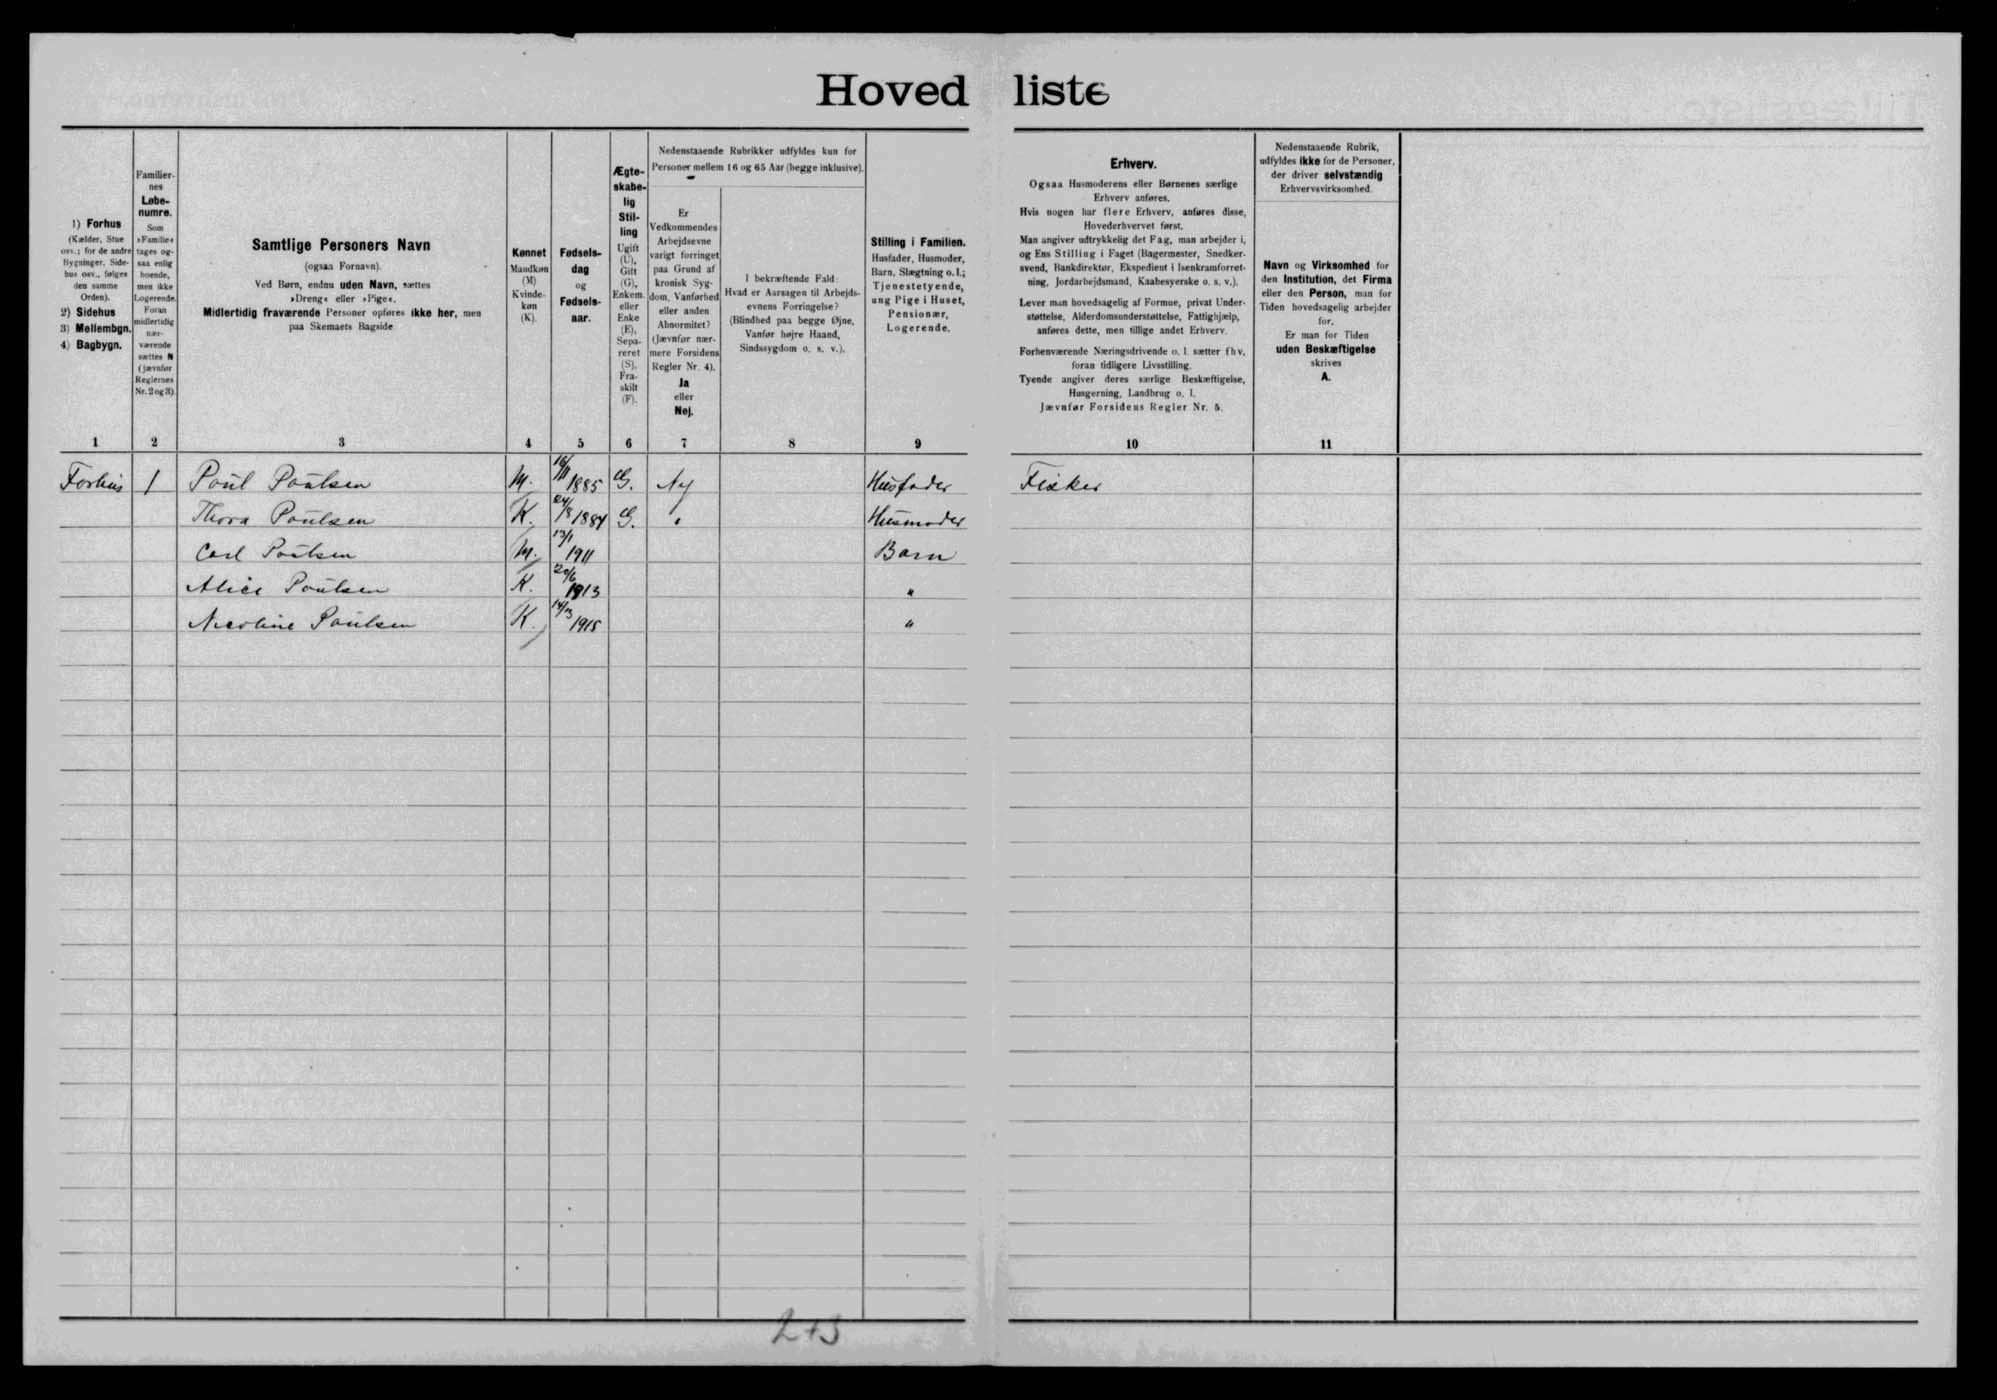 Hovedliste
1) Forhus
(Kælder, Stue
osv.; for de andre
Bygninger, Side-
hus osv., følges
den samme
Orden).
2) Sidehus
3) Mellembgn.
4) Bagbygn.
Familier-
nes
Løbe-
numre.
Som
»Familie«
tages og-
saa enlig
boende,
men ikke
Logerende.
Foran
midlertidig
nær-
værende
sættes N
(jævnfør
Reglernes
Nr. 2 og 3).
Samtlige Personers Navn
(ogsaa Fornavn).
Ved Børn, endnu uden Navn, sættes
»Dreng« eller »Pige«.
Midlertidig fraværende Personer opføres ikke her, men
paa Skemaets Bagside.
Kønnet
Mandkøn
(M)
Kvinde-
køn
(K).
Fødsels-
dag
og
Fødsels-
aar.
Ægte-
skabe-
lig
Stil-
ling
Ugift
(U),
Gift
(G),
Enkem.
eller
Enke
(E),
Sepa-
reret
(S),
Fra-
skilt
(F).
Nedenstaaende Rubrikker udfyldes kun for
Personer mellem 16 og 65 Aar (begge inklusive).
Er
Vedkommendes
Arbejdsevne
varigt forringet
paa Grund af
kronisk Syg-
dom, Vanførhed
eller anden
Abnormitet?
(Jævnfør nær-
mere Forsidens
Regler Nr. 4).
Ja
eller
Nej.
I bekræftende Fald:
Hvad er Aarsagen til Arbejds-
evnens Forringelse?
(Blindhed paa begge Øjne,
Vanfør højre Haand,
Sindssygdom o. s. v.).
Stilling i Familien.
Husfader, Husmoder,
Barn, Slægtning o. l.;
Tjenestetyende,
ung Pige i Huset,
Pensionær,
Logerende.
Erhverv.
Ogsaa Husmoderens eller Børnenes særlige
Erhverv anføres.
Hvis nogen har flere Erhverv, anføres disse,
Hovederhvervet først.
Man angiver udtrykkelig det Fag, man arbejder i,
og Ens Stilling i Faget (Bagermester, Snedker-
svend, Bankdirektør, Ekspedient i Isenkramforret-
ning, Jordarbejdsmand, Kaabesyerske o. s. v.).
Lever man hovedsagelig af Formue, privat Under-
støttelse, Alderdomsunderstøttelse, Fattighjælp,
anføres dette, men tillige andet Erhverv.
Forhenværende Næringsdrivende o. l. sætter fhv.
foran tidligere Livsstilling.
Tyende angiver deres særlige Beskæftigelse,
Husgerning, Landbrug o. l.
Jævnfør Forsidens Regler Nr. 5.
Nedenstaaende Rubrik,
udfyldes ikke for de Personer,
der driver selvstændig
Erhvervsvirksomhed.
Navn og Virksomhed for
den Institution, det Firma
eller den Person, man for
Tiden hovedsagelig arbejder
for.
Er man for Tiden
uden Beskæftigelse
skrives
A.
1 2 3 4 5 6 7 8 9 10 11
Forhus 1 Poul Poulsen M. 16/11 1885 G. Nej Husfader Fisker
Thora Poulsen K. 24/8 1884 G. " Husmoder
Carl Poulsen M. 13/1 1911 Barn
Alice Poulsen K. 20/6 1913 "
Nicoline Poulsen K. 1915 "
2+3